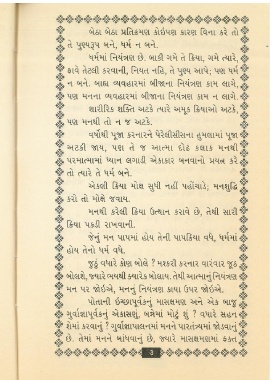 બેઠા બેઠા પ્રતિક્રમણ કોઇપણ કારણ વિના કરે તો
તે પુણ્યરૂપ બને, ધર્મ ન બને.
ધર્મમાં નિયંત્રણ છે. બાકી ગમે તે ક્રિયા, ગમે ત્યારે,
ફાવે તેટલી કરવાની, નિયત નહિ, તે પુણ્ય આપે; પણ ધર્મ
ન બને. બાહ્ય વ્યવહારમાં બીજાના નિયંત્રણ કામ ન લાગે,
પણ મનના વ્યવહારમાં બીજાના નિયંત્રણ કામ ન લાગે.
શારીરિક શક્તિ અટકે ત્યારે અમુક ક્રિયાઓ અટકે,
પણ મનથી તો ન જ અટકે.
વર્ષાથી પૂજા કરનારને પેરેલીસીસના હુમલામાં પૂજા
અટકી જાય, પણ તે જ આત્મા દોઢ કલાક મનથી
પરમાત્મામાં ધ્યાન લગાડી એકાકાર બનવાનો પ્રયત્ન કરે
તો ત્યારે તે ધર્મ બને.
એકલી ક્રિયા મોક્ષ સુધી નહીં પહોંચાડે; મનશુદ્ધિ
કરો તો મોક્ષે જવાય.
મનથી કરેલી ક્રિયા ઉત્થાન કરાવે છે, તેથી સારી
ક્રિયા પકડી રાખવાની.
જેનું મન પાપમાં હોય તેની પાપક્રિયા વધે, ધર્મમાં
હોય તેનો ધર્મ વધે.
જૂઠું વધારે કોણ બોલે? મશ્કરી કરનાર વારંવાર જૂઠ
બોલશે, જ્યારે ભયથી ક્યારેક બોલાય. તેથી આત્માનું નિયંત્રણ
મન પર જોઇએ, મનનું નિયંત્રણ કાયા ઉપર જોઇએ.
પોતાની ઇચ્છાપૂર્વકનું માસક્ષમણ અને એક બાજુ
ગુર્વાજ્ઞાપૂર્વકનું એકાસણું, બન્નેમાં મોટું શું? વધારે સહન
શેમાં કરવાનું? ગુર્વાજ્ઞાપાલનમાં મનને પારતંત્ર્યમાં જોડવાનું
છે. તેમાં મનને બાંધવાનું છે, જ્યારે માસક્ષમણમાં ફક્ત
3